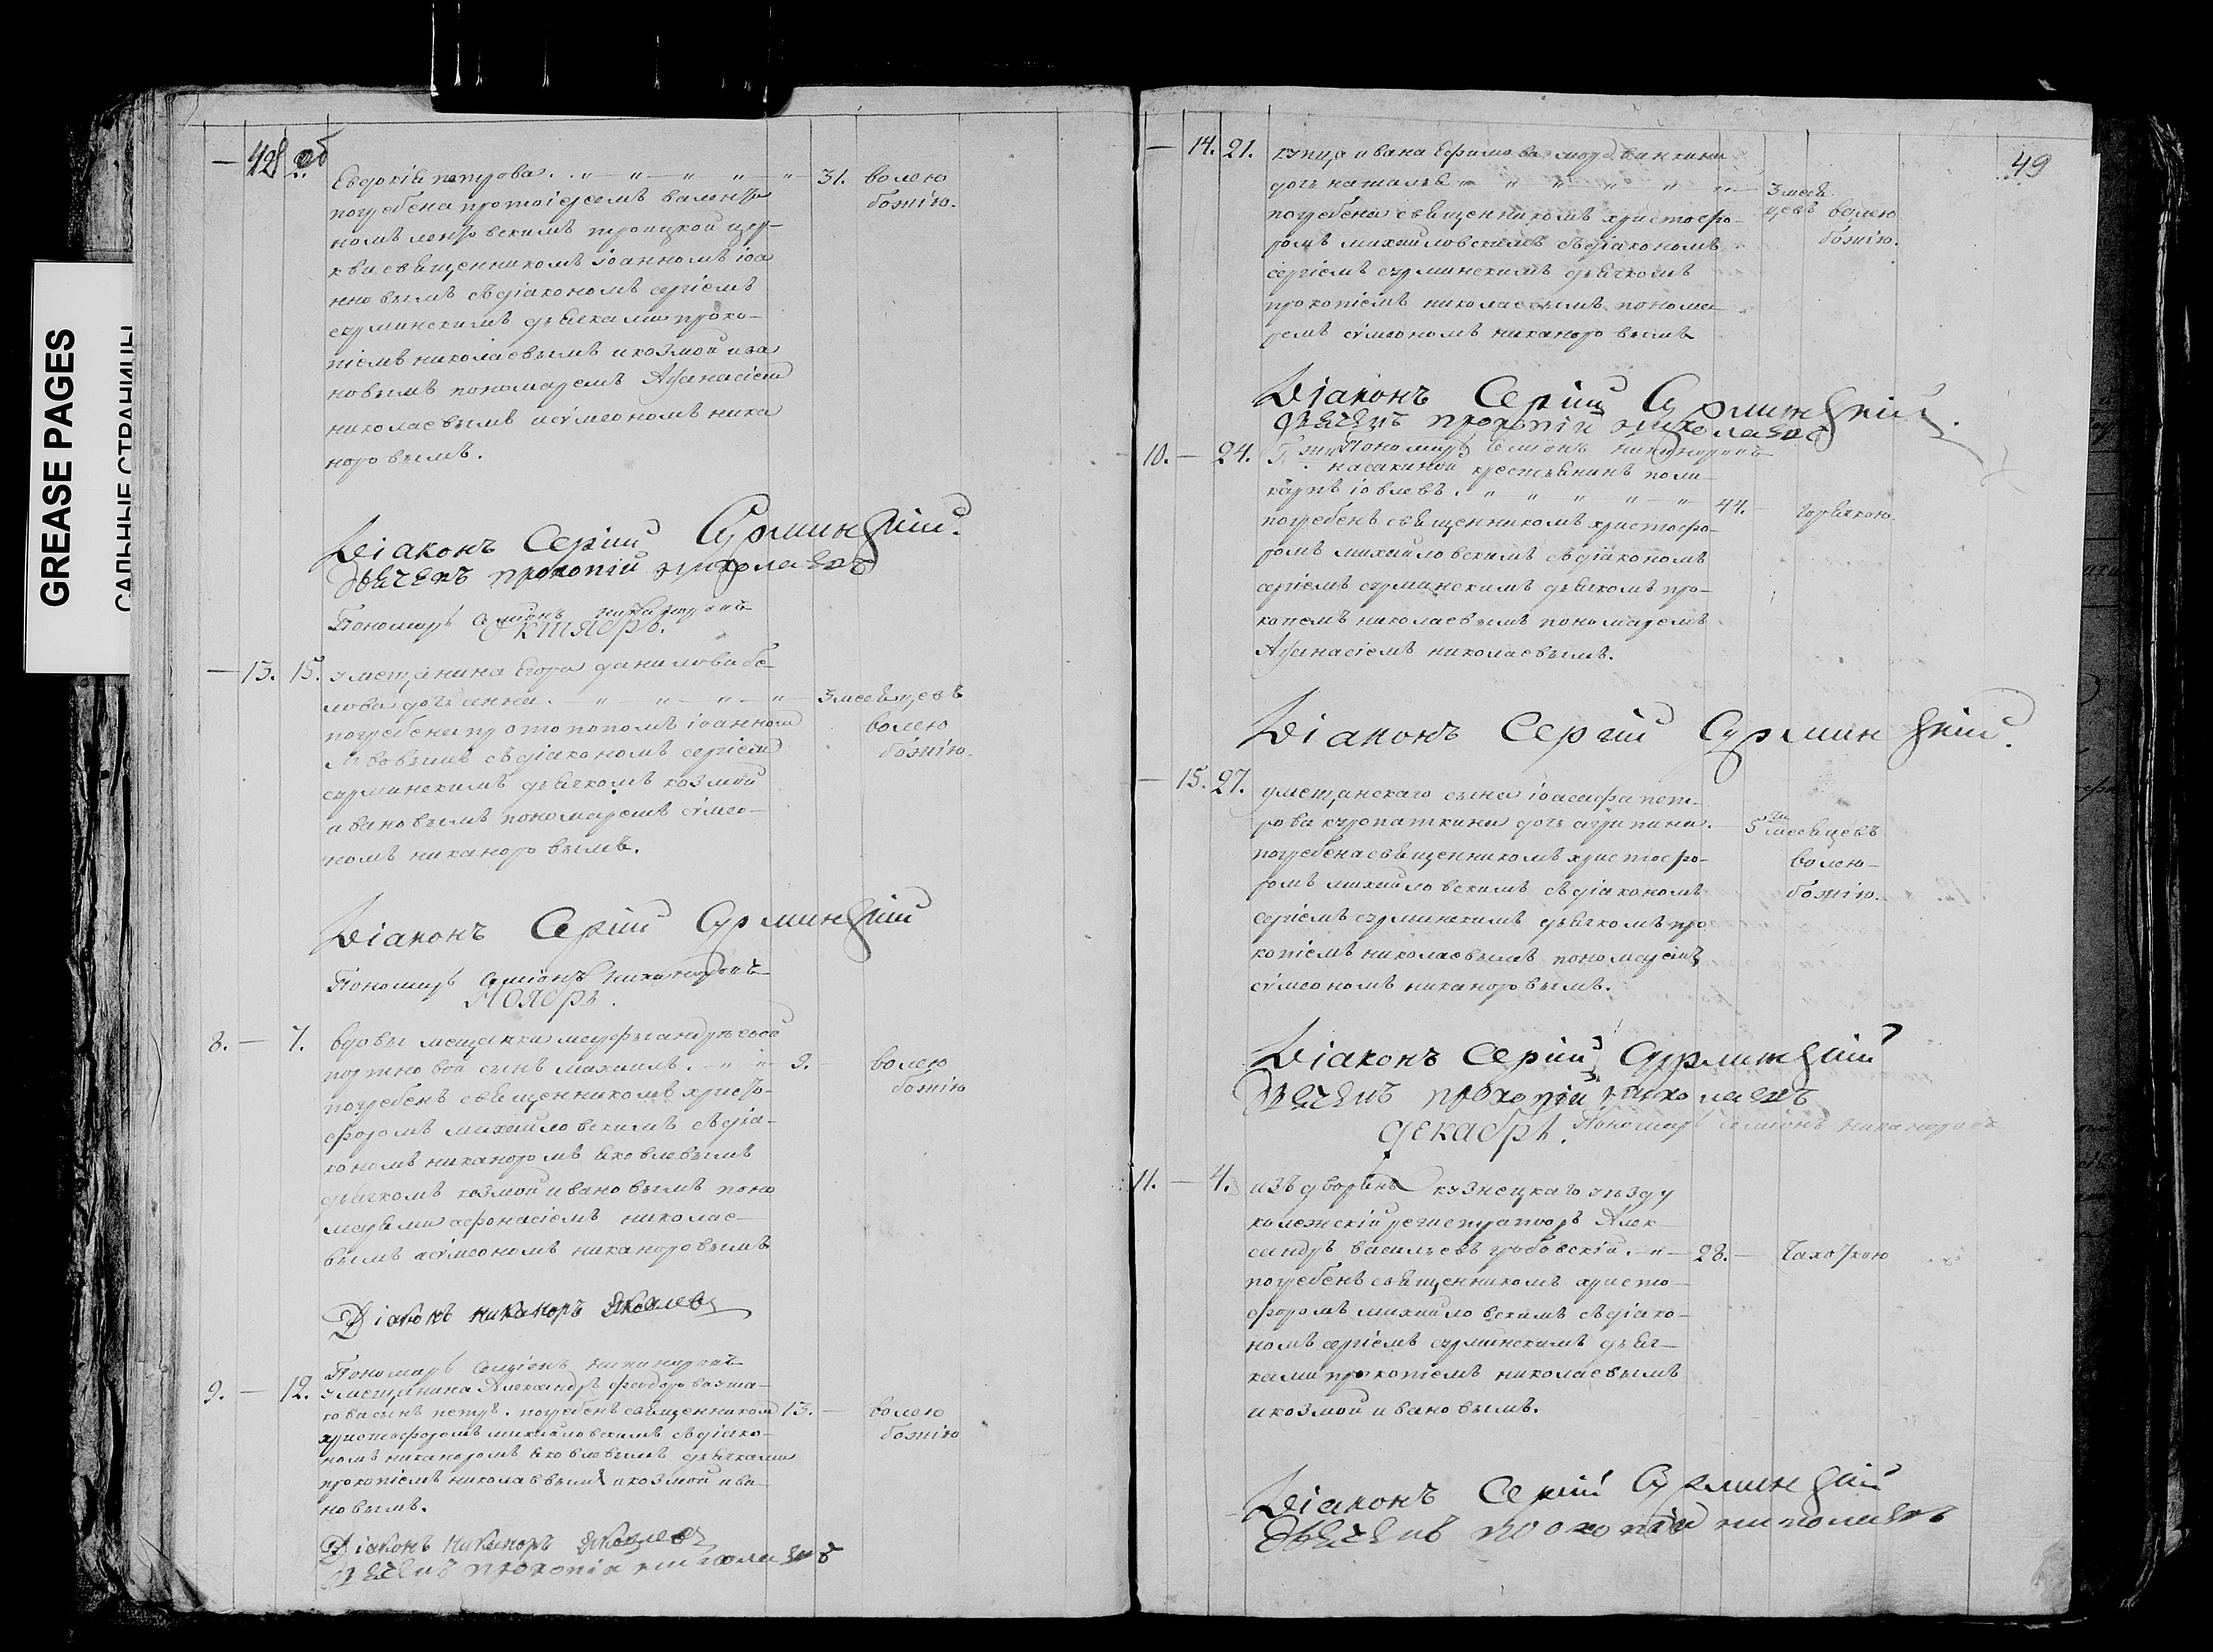 GREASE PAGES
САЛЬНЫЕ СТРАНИЦЫ
— 48 об
Евдокіѧ петрова. — 31. волею
погребена протоіереемъ
божію.
троицкой цер-
кви священникомъ іоанномъ іоа
нновымъ съдіакономъ сергіемъ
сурминскимъ дьячками проко-
піемъ николаевымъ икозмой ива
новымъ пономаремъ Афанасіем
николаевымъ исѵмеономъ ника
норовымъ.
Діаконъ Сергій Сурминскій.
Дьячекъ прокопій николаевъ
Пономарь семіонъ никаноровъ
Октябрь.
— 13. 15. умещанина Егора данилова бе-
лова дочь анна. — 3 месяцевъ
погребена протопопомъ іоанном волею
Львовымъ съдіакономъ сергіем божію.
сурминскимъ дьячкомъ козмой
ивановымъ пономаремъ сѵмео-
номъ никаноровымъ.
Діаконъ Сергій Сурминскій
Пономарь семіонъ никаноровъ
Ноябрь.
8. — 7. вдовы мещанки марфы андреевой
сынъ михаилъ. — 9. волею
погребенъ священникомъ христо- божію
форомъ михайловскимъ съдіа-
кономъ никаноромъ яковлевымъ
дьячкомъ козмой ивановымъ поно
марями афонасіемъ николае-
вымъ исѵмеономъ никаноровымъ
Діаконъ никаноръ яковлевъ
Пономарь семіонъ никаноровъ
9. — 12. умещанина Александра федорова
сынъ петръ. погребенъ священником 13. — волею
христофоромъ михайловскимъ съдіако- божію
номъ никаноромъ яковлевымъ дьячками
прокопіемъ николаевымъ икозмой ива-
новымъ.
Діаконъ никаноръ яковлевъ
Дьячекъ прокопій николаевъ
49
— 14. 21. купца ивана Ефимова
дочь наталья — 3 меся-
погребена священникомъ христофо- цевъ волею
ромъ михайловскимъ съдіакономъ божію.
сергіемъ сурминскимъ дьячкомъ
прокопіемъ николаевымъ понома-
ремъ сѵмеономъ никаноровымъ
Діаконъ Сергій Сурминскій.
Дьячекъ прокопій николаевъ
Пономарь семіонъ никаноровъ
10. — 24. крестьянинъ поли-
карпъ іовлевъ. — 44. — горячкою.
погребенъ священникомъ христофо-
ромъ михайловскимъ съдіакономъ
сергіемъ сурминскимъ дьячкомъ про-
копіемъ николаевымъ пономаремъ
Афанасіемъ николаевымъ.
Діаконъ Сергій Сурминскій.
— 15. 27. умещанскаго сына іоасафа пет-
рова куропаткина дочь агрипина. — 5ти месяцевъ
погребена священникомъ христофо- волею
ромъ михайловскимъ съдіакономъ божію.
сергіемъ сурминскимъ дьячкомъ про
копіемъ николаевымъ пономаремъ
сѵмеономъ никаноровымъ.
Діаконъ Сергій Сурминскій
Дьячекъ прокопій николаевъ
Декабрь. Пономарь семіонъ никаноровъ
11. — 4. изъ дворянъ кузнецкаго уъзду
колежскій регистраторъ Алек-
сандръ васильевъ — 28. — Чахоткою
погребенъ священникомъ христо-
форомъ михайловскимъ съдіако-
номъ сергіемъ сурминскимъ дьяч-
ками прокопіемъ николаевымъ
икозмой ивановымъ.
Діаконъ Сергій Сурминскій
Дьячекъ прокопій николаевъ